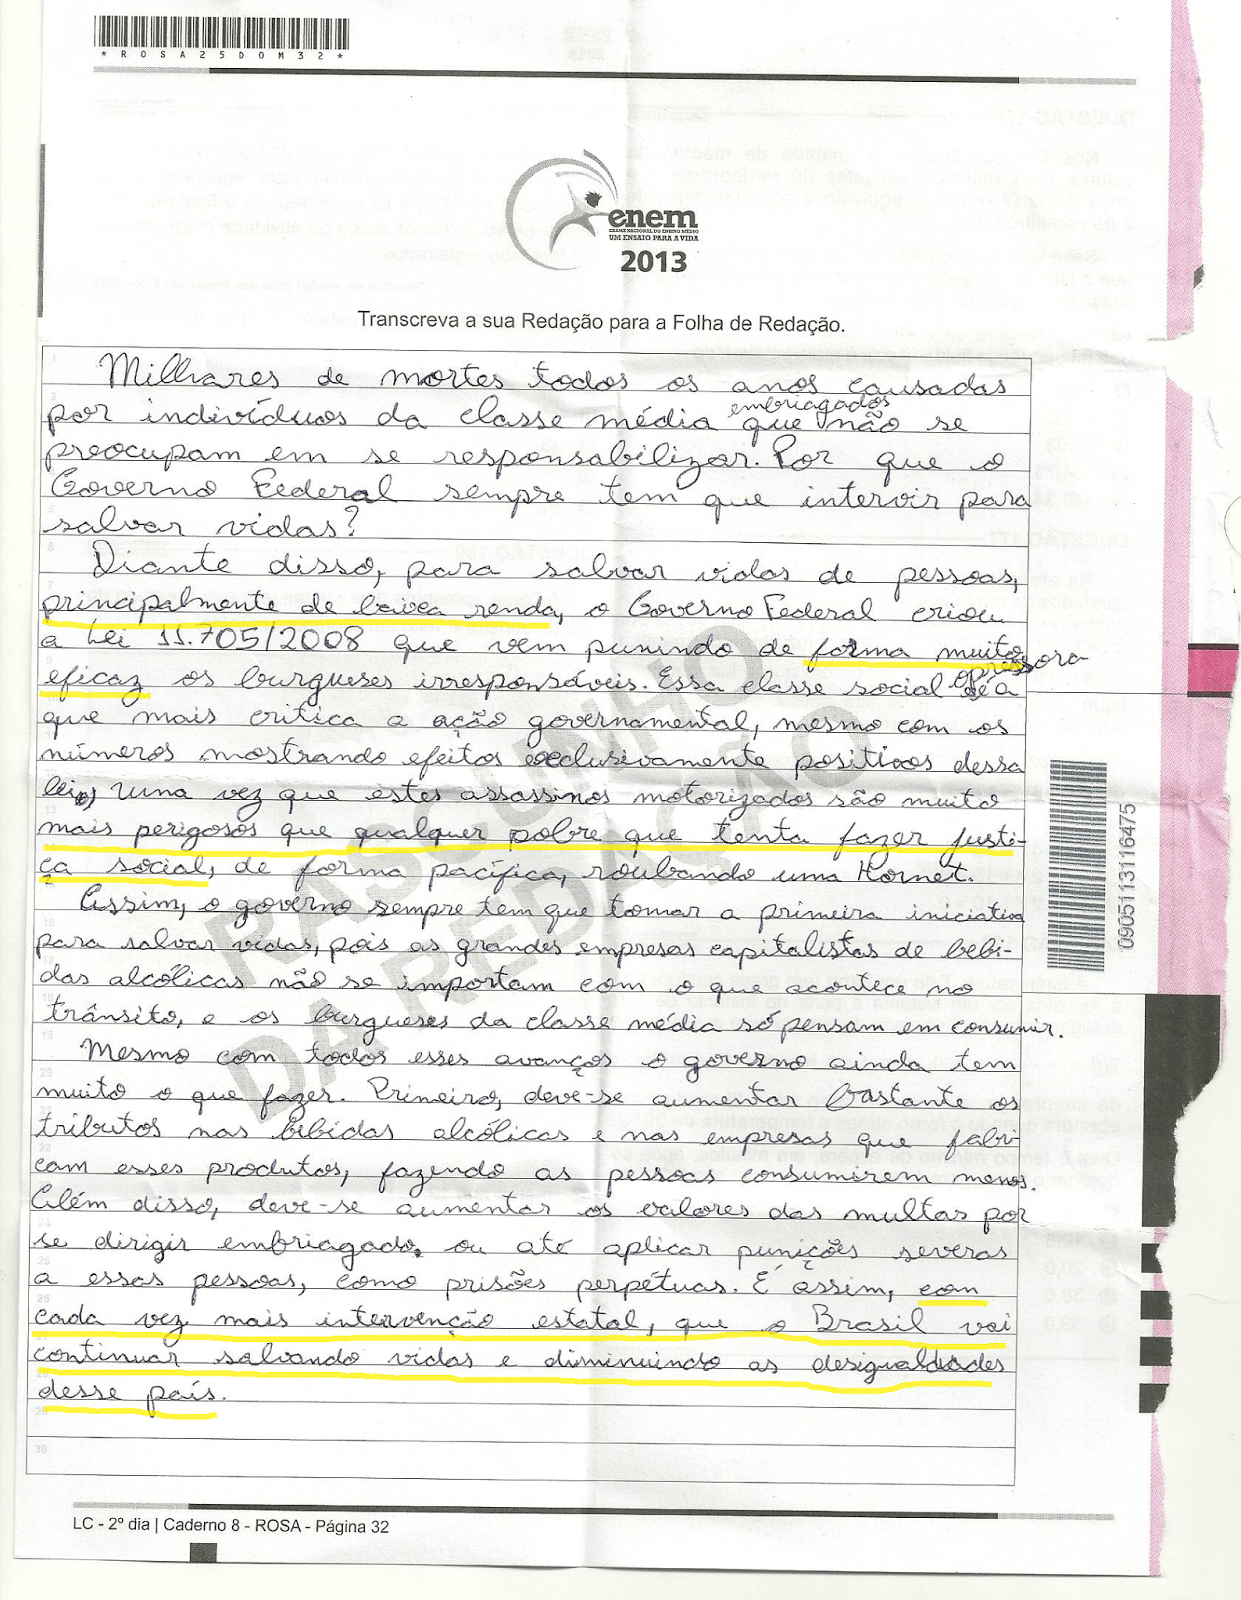 *ROSA25DOM32*
enem
EXAME NACIONAL DO ENSINO MÉDIO
UM ENSAIO PARA A VIDA
2013
Transcreva a sua Redação para a Folha de Redação.
Milhares de mortes todos os anos causadas
por indivíduos da classe média embriagados que não se
preocupam em se responsabilizar. Por que o
Governo Federal sempre tem que intervir para
salvar vidas?
Diante disso, para salvar vidas de pessoas,
principalmente de baixa renda, o Governo Federal criou
a Lei 11.705/2008 que vem punindo de forma muito
eficaz os burgueses irresponsáveis. Essa classe social opressora é a
que mais critica a ação governamental, mesmo com os
números mostrando efeitos exclusivamente positivos dessa
lei, uma vez que estes assassinos motorizados são muito
mais perigosos que qualquer pobre que tenta fazer justi-
ça social, de forma pacífica, roubando uma Hornet.
Assim, o governo sempre tem que tomar a primeira iniciativa
para salvar vidas, pois as grandes empresas capitalistas de bebi-
das alcólicas não se importam com o que acontece no
trânsito, e os burgueses da classe média só pensam em consumir.
Mesmo com todos esses avanços o governo ainda tem
muito o que fazer. Primeiro, deve-se aumentar bastante os
tributos nas bebidas alcólicas e nas empresas que fabri-
cam esses produtos, fazendo as pessoas consumirem menos.
Além disso, deve-se aumentar os valores das multas por
se dirigir embriagado, ou até aplicar punições severas
a essas pessoas, como prisões perpétuas. É assim, com
cada vez mais intervenção estatal, que o Brasil vai
continuar salvando vidas e diminuindo as desigualdades
desse país.
30
RASCUNHO
DA REDAÇÃO
090511311116475
LC - 2º dia | Caderno 8 - ROSA - Página 32